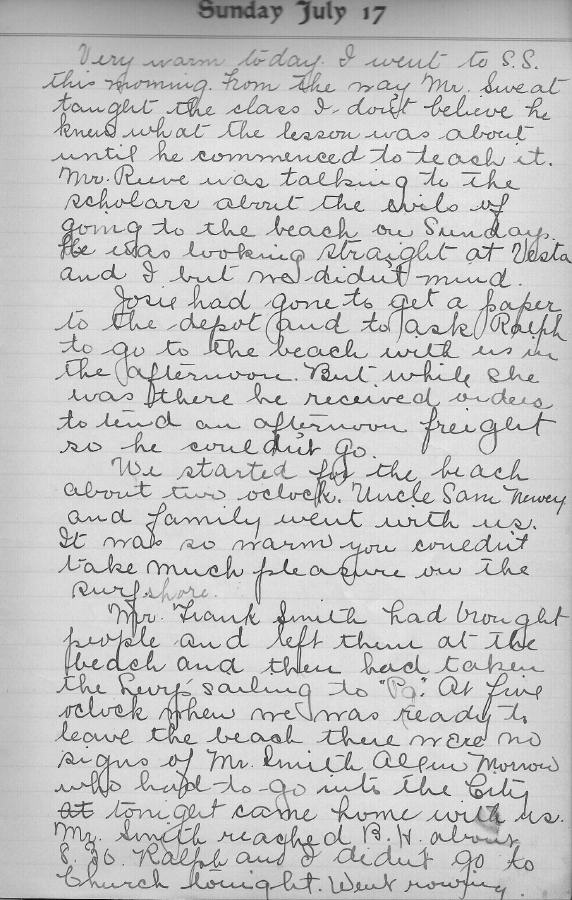 Sunday July 17
Very warm today. I went to S.S.
this morning. From the way Mr. Sweat
taught the class I don't believe he
knew what the lesson was about
until he commenced to teach it.
Mr. Reeve was talking to the
scholars about the evils of
going to the beach on Sundays.
He was looking straight at Vesta
and I but we didn't mind.
Josie had gone to get a paper
to the depot and to ask Ralph
to go to the beach with us in
the afternoon. But while she
was there he received orders
to tend an afternoon freight
so he couldn't go.
We started for the beach
about two oclock. Uncle Sam Newey
and family went with us.
It was so warm you couldn't
take much pleasure on the
surf shore.
Mr. Frank Smith had brought
people and left them at the
beach and then had taken
the Levys sailing to "Pg." At five
oclock when we was ready to
leave the beach there were no
signs of Mr. Smith Allen Morrow
who had to go into the City
at tonight came home with us.
Mr. Smith reached B.H. about
8.30. Ralph and I didn't go to
Church tonight. Went rowing.